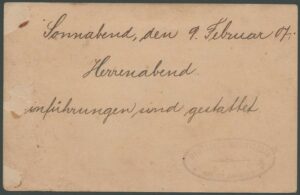 Sonnabend, den 9. Februar 07.
Herrenabend.
inführungen sind gestattet